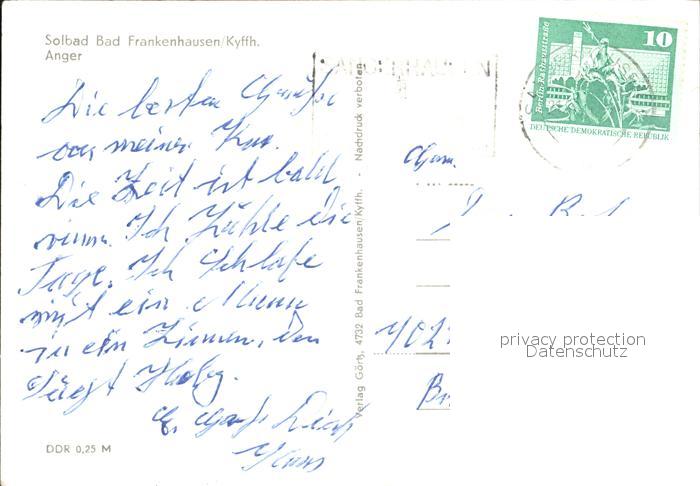 Solbad Bad Frankenhausen/Kyffh.
Anger
Die besten Grüße
von meiner Kur.
Die Zeit ist bald
rum. Ich Zähle die
Tage. Ich Schlafe
mit ein Mann
in ein Zimmer, der
Sägt Holz.
Hans
DDR 0,25 M
Verlag Görtz, 4732 Bad Frankenhausen/Kyffh. - Nachdruck verboten
Berlin-Rathausstraße
10
DEUTSCHE DEMOKRATISCHE REPUBLIK
privacy protection
Datenschutz